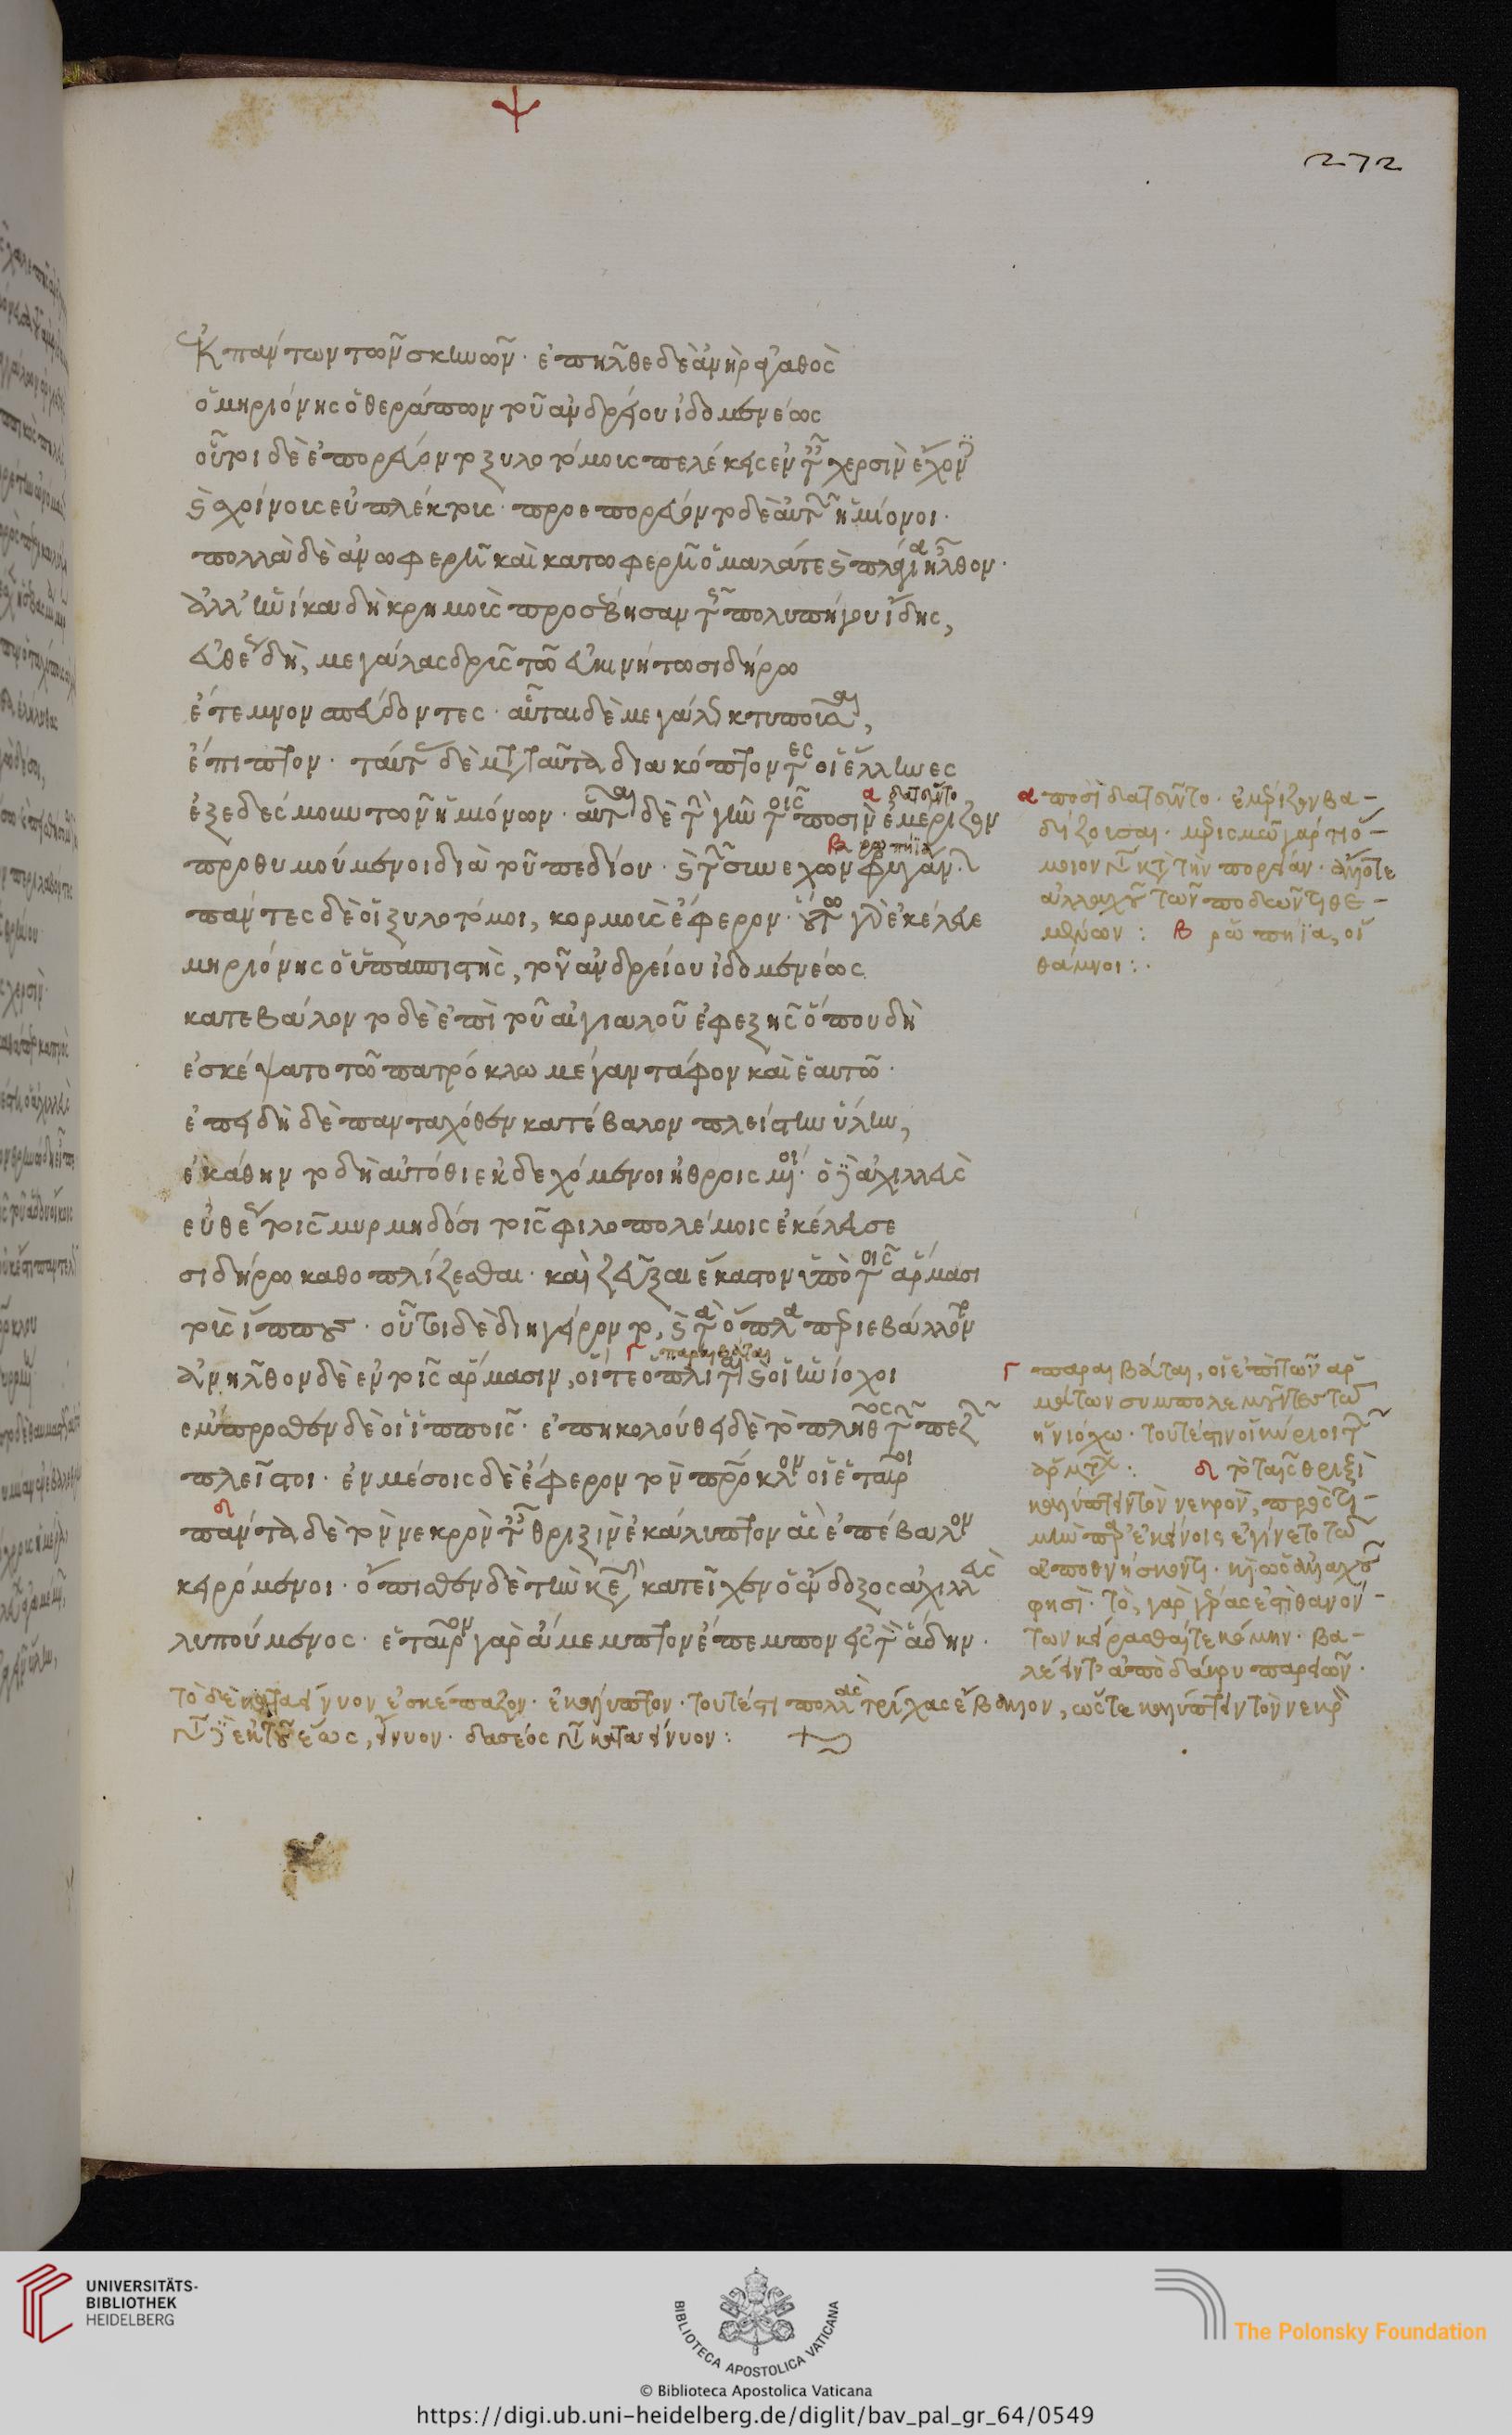 ἐκ πάντων τῶν σκηνῶν · ἐπῆλθε δὲ ἀνὴρ ἀγαθὸς
ὁ μηριόνης ὁ θεράπων τοῦ ἀνδρείου ἰδομενέως
οὗτοι δὲ ἐπορεύοντο ξυλοτόμους πελέκεις ἐν ταῖς χερσὶν ἔχοντες
καὶ σχοίνους εὐπλέκτους · προεπορεύοντο δὲ αὐτῶν ἡμίονοι ·
πολλὰ δὲ ἀνωφερῆ καὶ κατωφερῆ ὁμαλά τε καὶ πλάγια ἦλθον ·
ἀλλ' ἡνίκα δὴ κρημνοῖς προσέβησαν τῆς πολυπήγου ἴδης,
εὐθέως δὴ, μεγάλας δρῦς τῷ σιδήρῳ
ἔτεμνον σπεύδοντες · αὗται δὲ μεγάλως κτυποῦσαι,
ἔπιπτον · ταύτας δὲ μετὰ ταῦτα διακόπτοντες οἱ ἕλληνες
ἐξεδέσμουν τῶν ἡμιόνων · αὗται δὲ τὴν γῆν τοῖς ποσὶν ἐμέριζον
α δατεῦντο
προθυμούμενοι διὰ τοῦ πεδίου · καὶ τῶν συνεχῶν
β ῥωπήϊα
πάντες δὲ οἱ ξυλοτόμοι, κορμοὺς ἔφερον · οὕτω γὰρ ἐκέλευε
μηριόνης ὁ ὑπασπιστὴς, τοῦ ἀνδρείου ἰδομενέως
κατεβάλοντο δὲ ἐπὶ τοῦ αἰγιαλοῦ ἐφεξῆς ὅπου δὴ
ἐσκέψατο τῷ πατρόκλω μέγαν τάφον καὶ ἑαυτῷ ·
ἐπειδὴ δὲ πανταχόθεν κατέβαλον πλείστην ὕλην,
ἐκάθηντο δὴ αὐτόθι ἐκδεχόμενοι ἠθροισμένοι · ὁ δὲ ἀχιλλεὺς
εὐθέως τοῖς μυρμηδόσι τοῖς φιλοπολέμοις ἐκέλευσε
σιδήρω καθοπλίζεσθαι · καὶ ζεῦξαι ἕκαστον ὑπὸ τοῖς ἅρμασι
τοὺς ἵππους · οὗτοι δὲ διηγείροντο, καὶ τὰ ὅπλα περιεβάλλοντο
ἀνῆλθον δὲ ἐν τοῖς ἅρμασιν, οἵ τε ὁπλῖται καὶ οἱ ἡνίοχοι
γ παραιβάται
ἔμπροσθεν δὲ οἱ ἵπποις · ἐπηκολούθει δὲ τὸ πλῆθος τῶν πεζῶν
πλεῖστοι · ἐν μέσοις δὲ ἔφερον τὸν πάτροκλον οἱ ἑταῖροι
δ πάντα δὲ τὸν νεκρὸν ταῖς θριξὶν ἐκάλυπτον ἃς ἐπέβαλον
κειρόμενοι · ὄπισθεν δὲ τὴν κεφαλὴν κατεῖχεν ὁ ἔνδοξος ἀχιλλεὺς
λυπούμενος · ἑταῖρον γὰρ ἄμεμπτον ἔπεμπον εἰς τὸν ἅδην ·
α ποσὶ δατεῦντο · ἐμέριζον βα-
δίζουσαι · μερισμῷ γὰρ τι ὅ-
μοιον κατὰ τὴν πορείαν · ἄλλοτε
ἀλλαχοῦ τῶν ποδῶν τιθε-
μένων : β ῥωπήϊα, οἱ
θάμνοι : ·
γ παραιβάται, οἱ ἐπὶ τῶν ἁρ-
μάτων συμπολεμοῦντες τῷ
ἡνιόχω · τουτέστιν οἱ κύριοι τῶν
ἁρμάτων : δ τὸ ταῖς θριξὶ
καλύπτειν τὸν νεκρὸν, πρὸς τι-
μὴν παρ' ἐκείνοις ἐγίνετο τῷ
ἀποθνήσκοντι · καὶ ὡς ἀλλαχοῦ
φησί · τὸ γὰρ γέρας ἐστὶ θανόν-
των κείρασθαί τε κόμην · βα-
λέειν τ' ἀπὸ δάκρυ παρειῶν ·
τὸ δὲ καταείνυον ἐσκέπαζον · ἐκάλυπτον · τουτέστι πολλὰς τρίχας ἔβαλλον, ὥστε καλύπτειν τὸν νεκρὸν
ἐκ τοῦ ἕω, εἵνυον · δασέως καταείνυον :
272
UNIVERSITÄTS-
BIBLIOTHEK
HEIDELBERG
BIBLIOTECA APOSTOLICA VATICANA
© Biblioteca Apostolica Vaticana
The Polonsky Foundation
https://digi.ub.uni-heidelberg.de/diglit/bav_pal_gr_64/0549